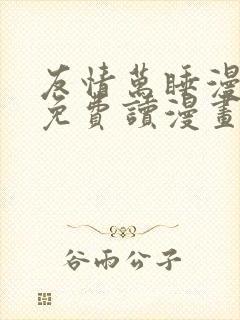 友情萬睡漫
免費讀漫畫
谷雨公子